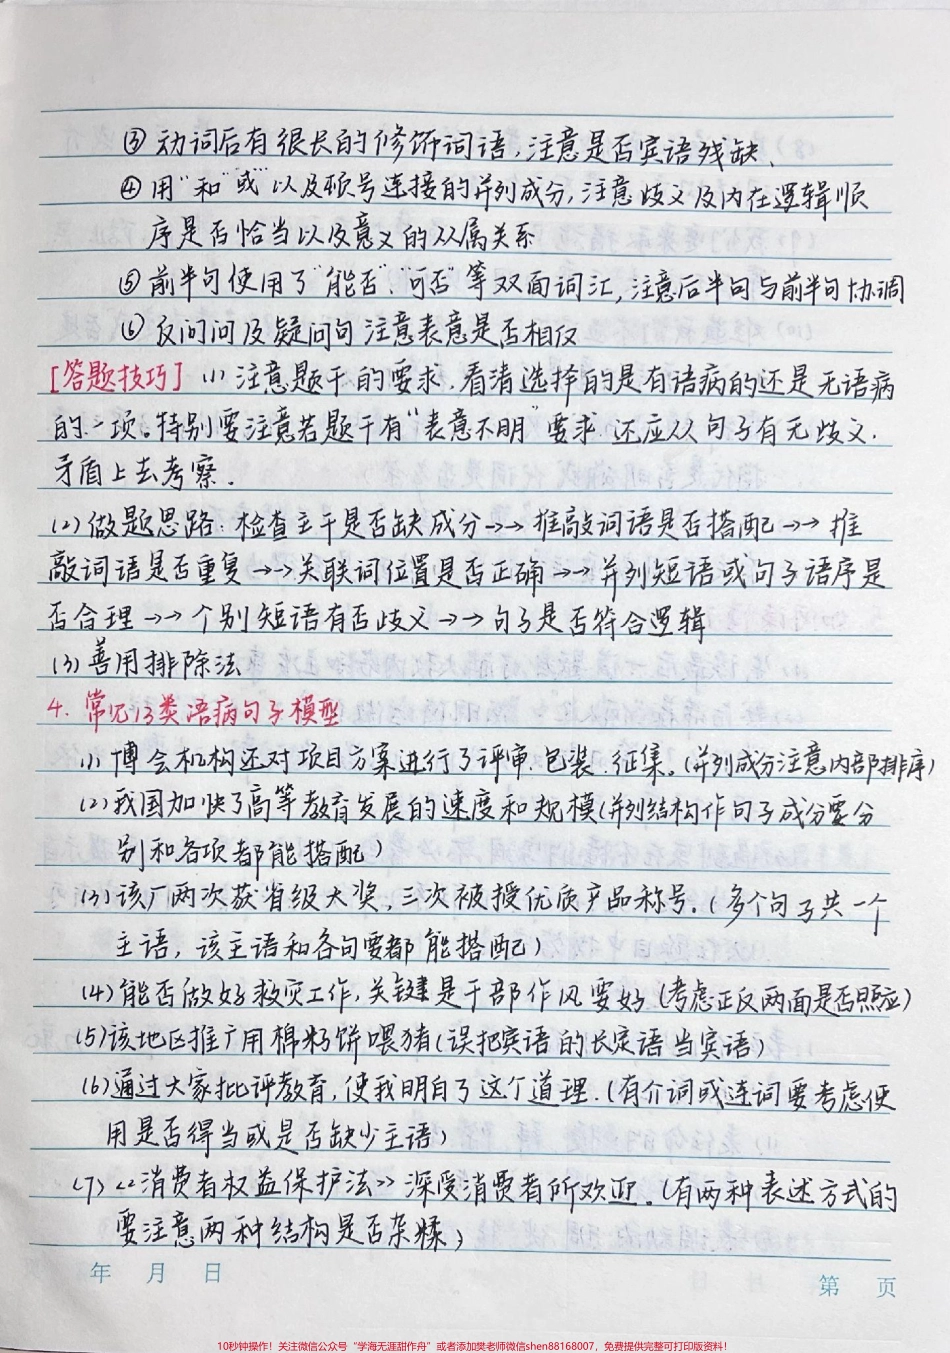 ③动词后有很长的修饰词语,注意是否宾语残缺、
④用"和""或"以及顿号连接的并列成分,注意歧义及内在逻辑顺
序是否恰当以及意义的从属关系
⑤前半句使用了"能否"、"可否"等双面词汇,注意后半句与前半句协调
⑥反问问及疑问句注意表意是否相反
[答题技巧](1)注意题干的要求,看清选择的是有语病的还是无语病
的一项。特别要注意若题干有"表意不明"要求,还应从句子有无歧义.
矛盾上去考察.
(2)做题思路:检查主干是否缺成分→→推敲词语是否搭配→→推
敲词语是否重复→→关联词位置是否正确→→并列短语或句子语序是
否合理→→个别短语有否歧义→→句子是否符合逻辑
(3)善用排除法
4.常见13类语病句子模型
(1)博会机构还对项目方案进行了评审.包装.征集.(并列成分注意内部排序)
(2)我国加快了高等教育发展的速度和规模(并列结构作句子成分要分
别和各项都能搭配)
(3)该厂两次获省级大奖,三次被授优质产品称号.(多个句子共一个
主语,该主语和各句要都能搭配)
(4)能否做好救灾工作,关键是干部作风要好(考虑正反两面是否照应)
(5)该地区推广用棉籽饼喂猪(误把宾语的长定语当宾语)
(6)通过大家批评教育,使我明白了这个道理.(有介词或连词要考虑使
用是否得当或是否缺少主语)
(7)《消费者权益保护法》深受消费者所欢迎。(有两种表述方式的
要注意两种结构是否杂糅)
年 月 日
第 页
10秒钟操作!关注微信公众号"学海无涯甜作舟"或者添加樊老师微信shen88168007,免费提供完整可打印版资料!